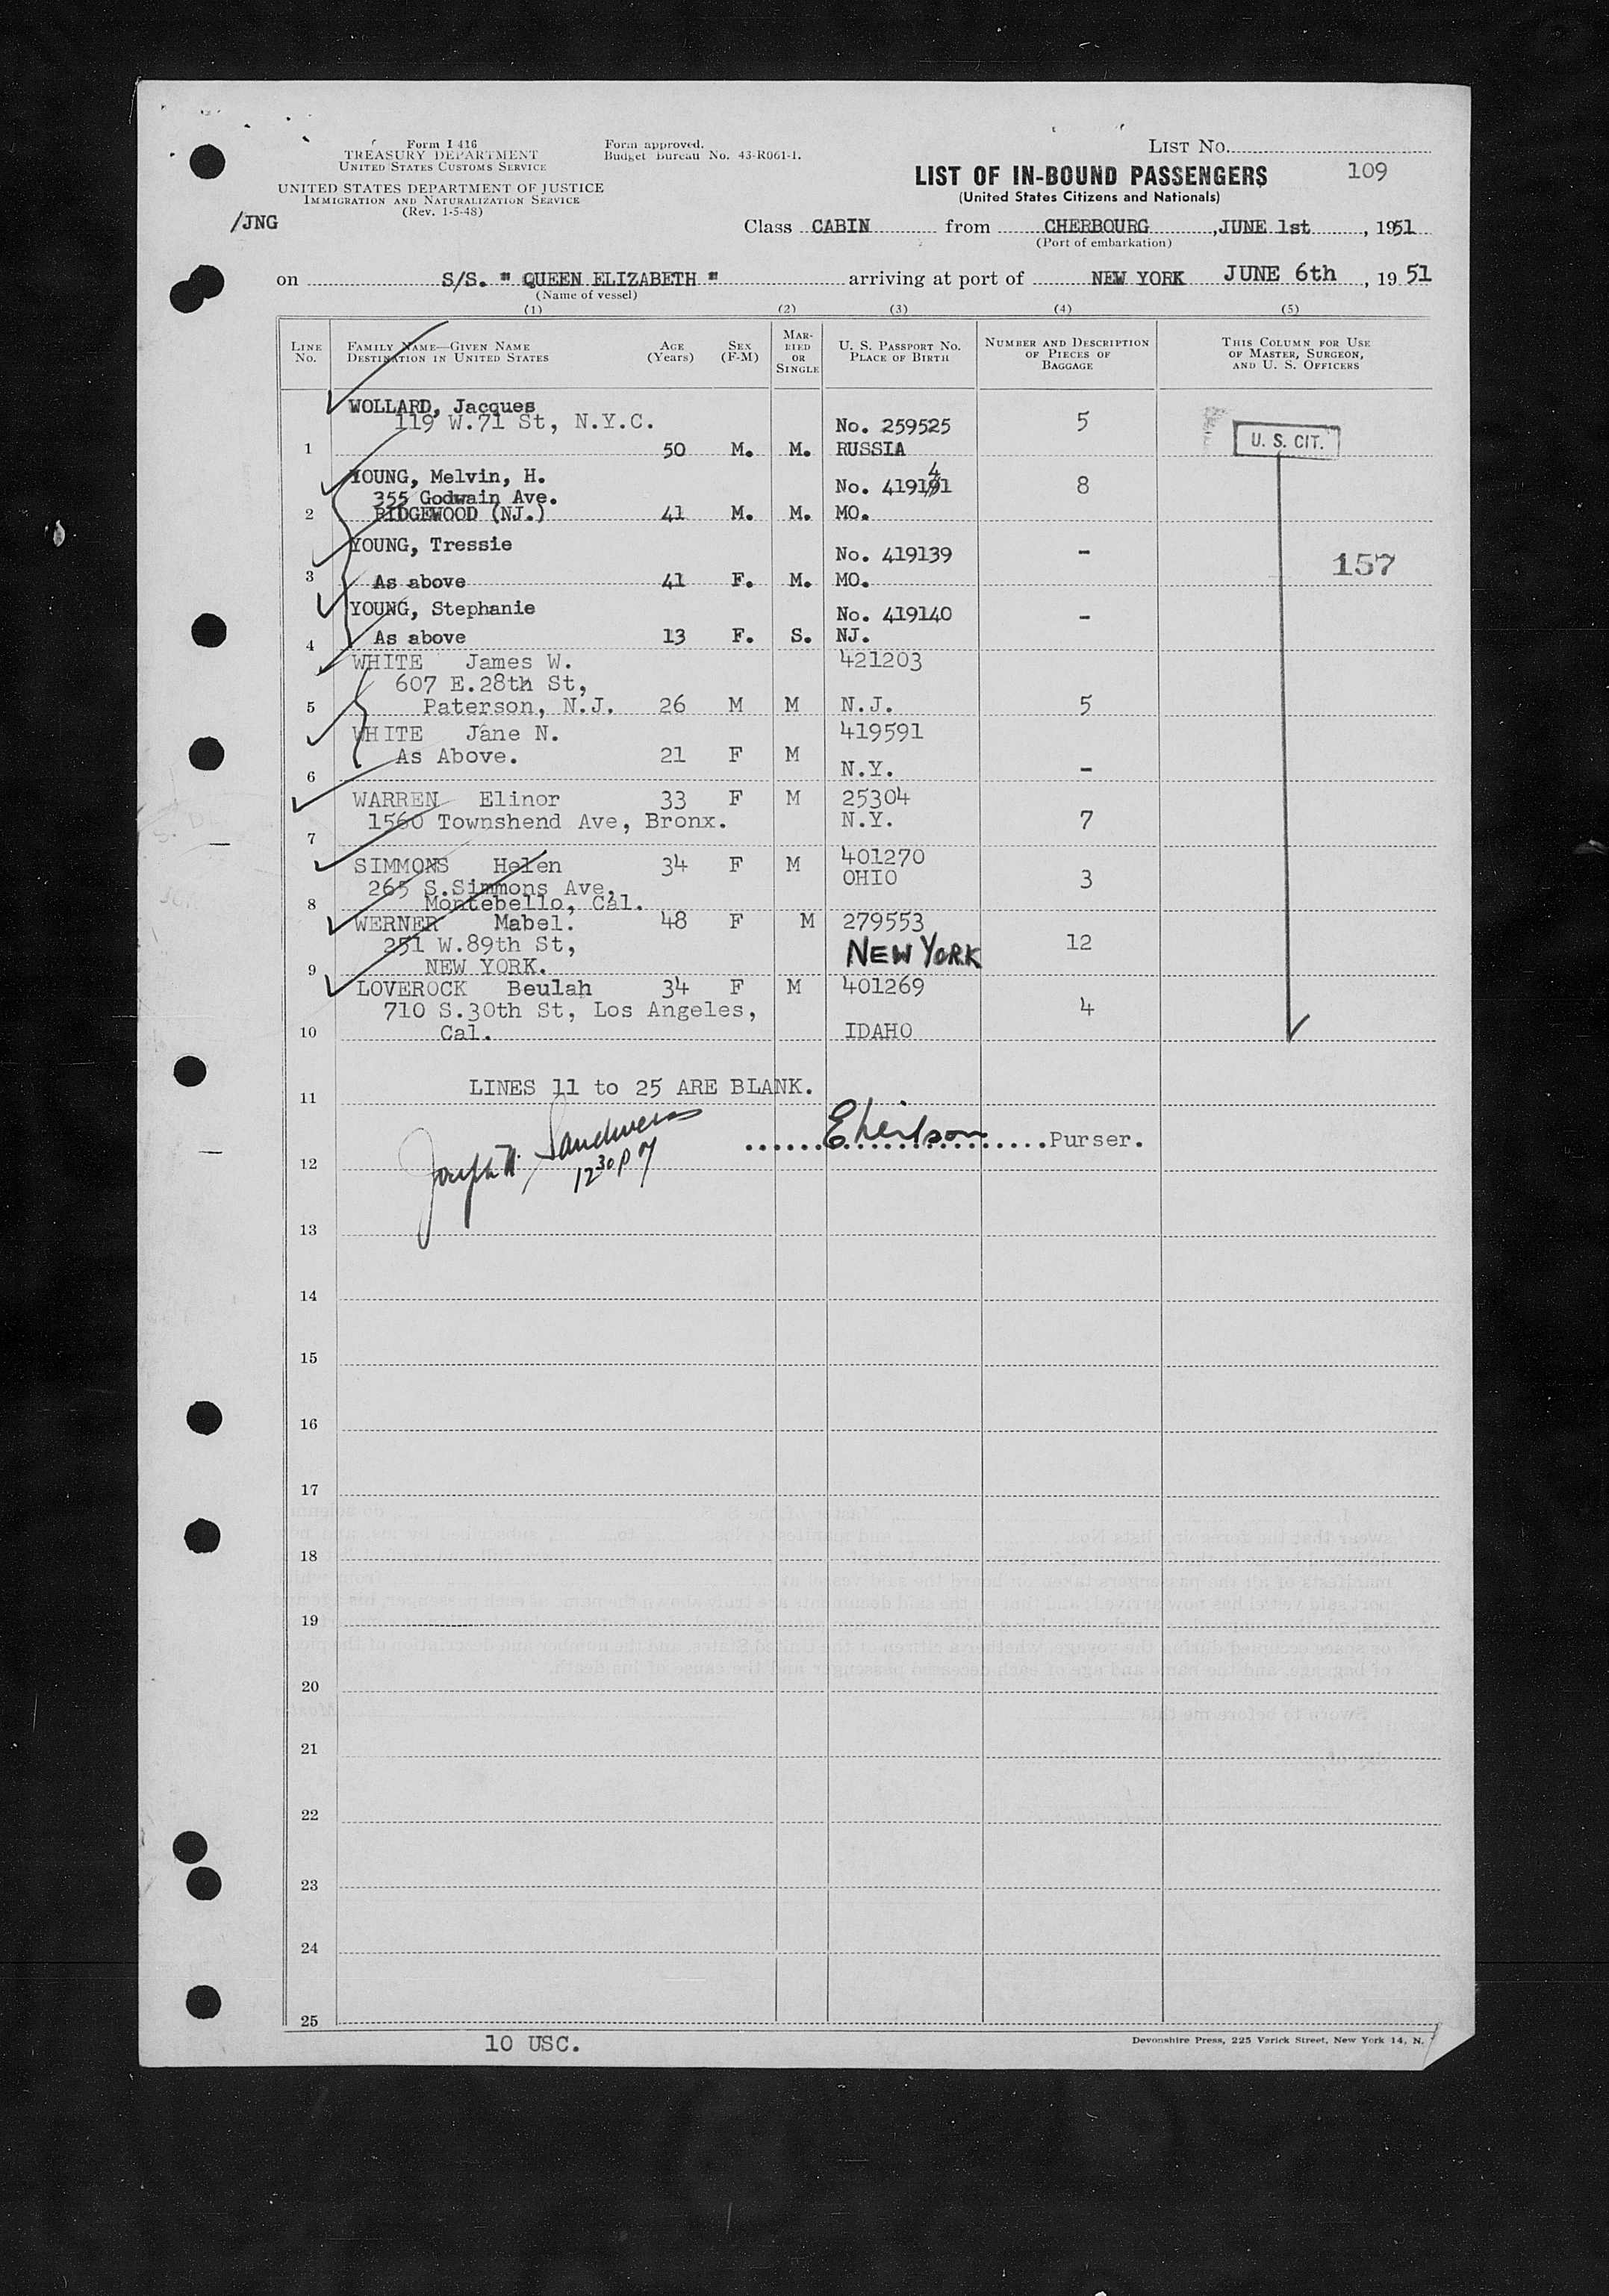 Form I 416
TREASURY DEPARTMENT
UNITED STATES CUSTOMS SERVICE
UNITED STATES DEPARTMENT OF JUSTICE
IMMIGRATION AND NATURALIZATION SERVICE
(Rev. 1-5-48)
Form approved.
Budget Bureau No. 43-R061-1.
LIST No.
109
LIST OF IN-BOUND PASSENGERS
(United States Citizens and Nationals)
/JNG
Class CABIN from CHERBOURG, JUNE 1st, 1951
(Port of embarkation)
on S/S. " QUEEN ELIZABETH " arriving at port of NEW YORK JUNE 6th, 1951
(Name of vessel)
(1) (2) (3) (4) (5)
LINE No. FAMILY NAME—GIVEN NAME DESTINATION IN UNITED STATES AGE (Years) SEX (F-M) MARRIED OR SINGLE U. S. PASSPORT No. PLACE OF BIRTH NUMBER AND DESCRIPTION OF PIECES OF BAGGAGE THIS COLUMN FOR USE OF MASTER, SURGEON, AND U. S. OFFICERS
WOLLARD, Jacques
119 W.71 St, N.Y.C. No. 259525 5 U. S. CIT.
1 50 M. M. RUSSIA
YOUNG, Melvin, H. No. 419191 4 8
355 Godwain Ave.
2 RIDGEWOOD (NJ.) 41 M. M. MO.
YOUNG, Tressie No. 419139 - 157
3 As above 41 F. M. MO.
YOUNG, Stephanie No. 419140 -
4 As above 13 F. S. NJ.
WHITE James W. 421203
607 E.28th St,
5 Paterson, N.J. 26 M M N.J. 5
WHITE Jane N. 419591
As Above. 21 F M
6 N.Y. -
WARREN Elinor 33 F M 25304
1560 Townshend Ave, Bronx. N.Y. 7
7
SIMMONS Helen 34 F M 401270
265 S.Simmons Ave, OHIO 3
8 Montebello, Cal.
WERNER Mabel. 48 F M 279553
251 W.89th St, NEW YORK 12
9 NEW YORK.
LOVEROCK Beulah 34 F M 401269
710 S.30th St, Los Angeles, 4
10 Cal. IDAHO
LINES 11 to 25 ARE BLANK.
11
Purser.
12 12 30 P
13
14
15
16
17
18
19
20
21
22
23
24
25
10 USC.
Devonshire Press, 225 Varick Street, New York 14, N.